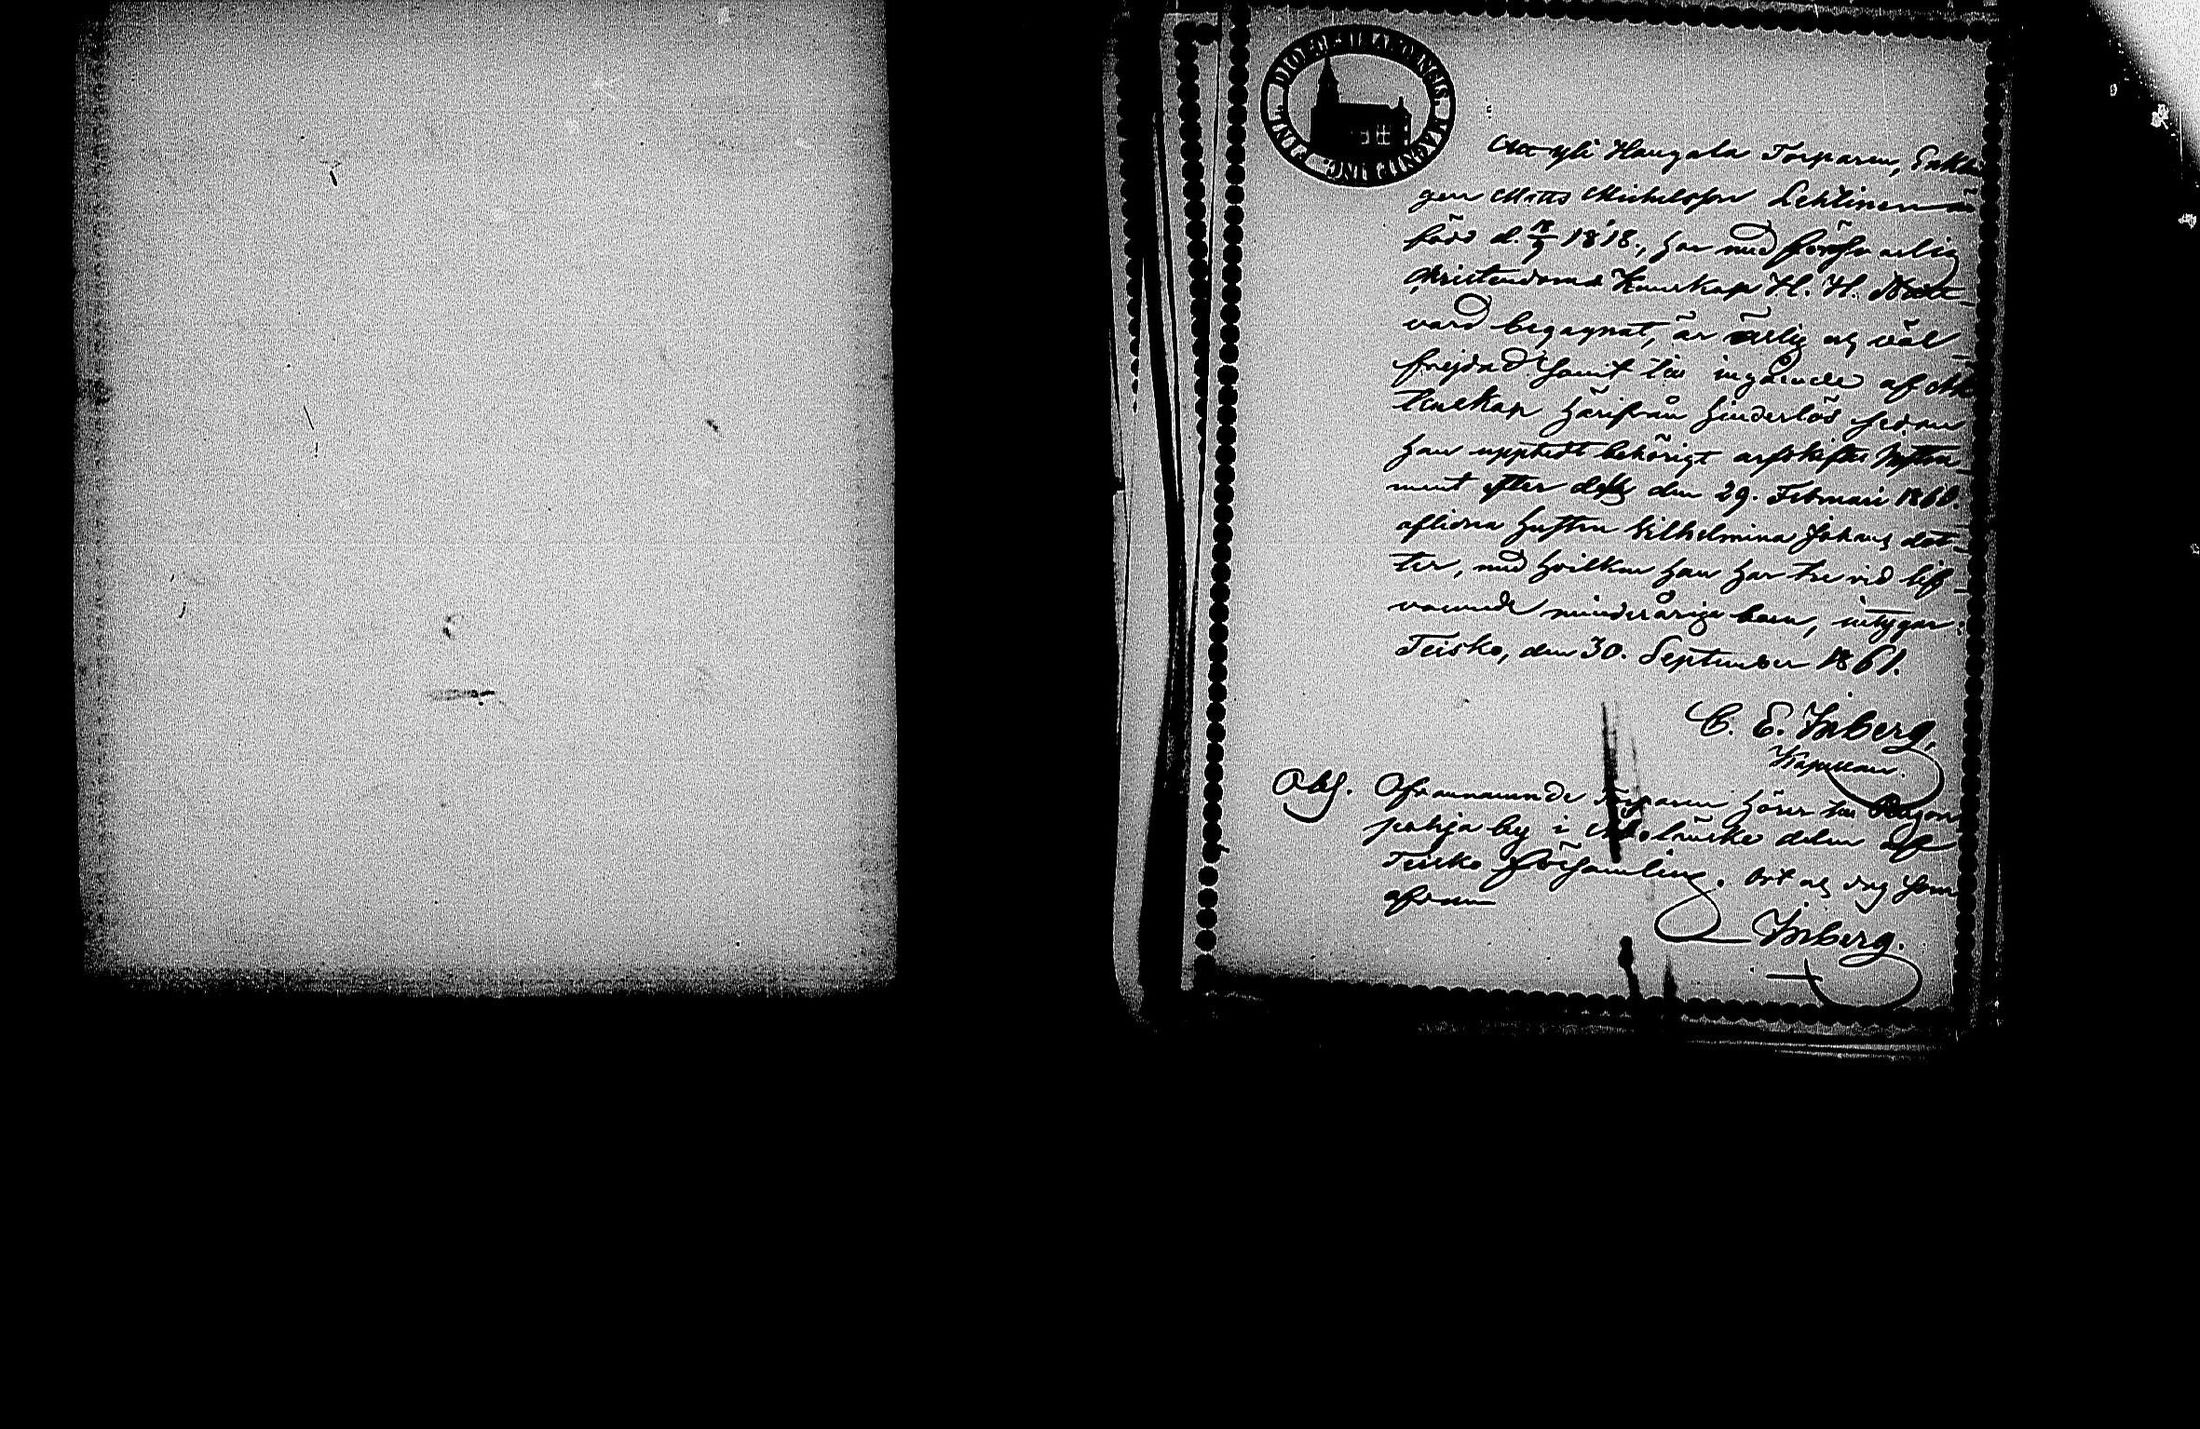 DIOECES. ABOENSIS. MAGNI PRINC. FINL.
Att Yli Haugala Torparen, Enklin
gen Matts Michelsson Lehtinen
född d. 1818., har med försvarlig
Christendoms Kunskap H. H. Natt-
vard begagnat, är ärlig och väl-
frejdad samt till ingående af äk-
tenskap härifrån hinderlös sedan
han upptedt behörigt arfskiftes Instru-
ment efter den 29. Februari 1860.
aflidna hustrun Wilhelmina Johans dot-
ter, med hvilken han har tre vid lif
varande minderåriga barn, intygar:
Teisko, den 30. September 1861.
C. E. Inberg,
Kapellan.
Obs. Ofvannämnde Torparen hörer till
pohja by i delen af
Teisko församling. Ort och dag som
ofvan
Inberg.